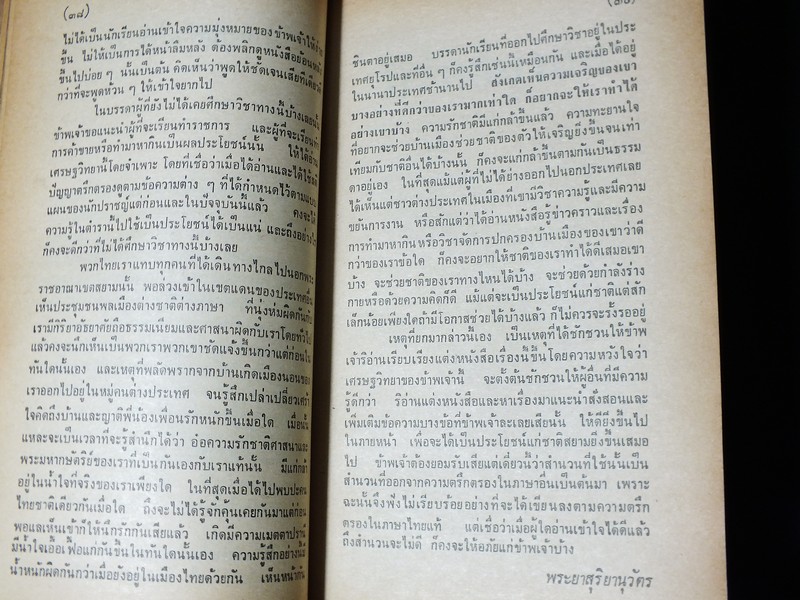 (๓๘)
ไม่ได้เป็นนักเรียนอ่านเข้าใจความมุ่งหมายของ ข้าพเจ้าให้ง่าย
ขึ้น ไม่ให้เป็นการได้หน้าลืมหลัง ต้องพลิกดูหนังสือย้อนหน้า
ขึ้นไปบ่อย ๆ นั้นเป็นต้น คิดเห็นว่าพูดให้ชัดเจนเสียทีเดียวดี
กว่าที่จะพูดห้วน ๆ ให้เข้าใจยากไป
ในบรรดาผู้ที่ยังไม่ได้เคยศึกษาวิชาทางนี้บ้างเลยนั้น
ข้าพเจ้าขอแนะนำผู้ที่จะเรียนทำราชการ และผู้ที่จะเรียนทำ
การค้าขายหรือทำมาหากินเป็นผลประโยชน์นั้น ให้ได้อ่าน
เศรษฐวิทยานี้โดยจำเพาะ โดยที่เชื่อว่าเมื่อได้อ่านและได้ใช้สติ
ปัญญาตรึกตรองดูตามข้อความต่าง ๆ ที่ได้กำหนดไว้ตามแบบ
แผนของนักปราชญ์แต่ก่อนและในปัจจุบันนี้แล้ว คงจะได้
ความรู้ในตำรานี้ไปใช้เป็นประโยชน์ได้เป็นแน่ และถึงอย่างไร
ก็คงจะดีกว่าที่ไม่ได้ศึกษาวิชาทางนี้บ้างเลย
พวกไทยเราแทบทุกคนที่ได้เดินทางไกลไปนอกพระ
ราชอาณาเขตสยามนั้น พอล่วงเข้าในเขตแดนของประเทศอื่น
เห็นประชุมชนพลเมืองต่างชาติต่างภาษา ที่นุ่งห่มผิดกันกับ
เรามีกิริยาอัธยาศัยถือธรรมเนียมและศาสนาผิดกับเราโดยทั่วไป
แล้วคงจะนึกเห็นเป็นพวกเราพวกเขาชัดแจ้งขึ้นกว่าแต่ก่อนใน
ทันใดนั้นเอง และเหตุที่พลัดพรากจากบ้านเกิดเมืองนอนของ
เราออกไปอยู่ในหมู่คนต่างประเทศ จนรู้สึกเปล่าเปลี่ยวเศร้า
ใจคิดถึงบ้านและญาติพี่น้องเพื่อนรักหนักขึ้นเมื่อใด เมื่อนั้น
แหละจะเป็นเวลาที่จะรู้สำนึกได้ว่า อ่อความรักชาติศาสนาและ
พระมหากษัตริย์ของเราที่เป็นกันเองกับเราแท้นั้น มีแก่กล้า
อยู่ในน้ำใจที่จริงของเราเพียงใด ในที่สุดเมื่อได้ไปพบปะคน
ไทยชาติเดียวกันเมื่อใด ถึงจะไม่ได้รู้จักคุ้นเคยกันมาแต่ก่อน
พอแลเห็นเข้าก็ให้นึกรักกันเสียแล้ว เกิดมีความเมตตาปรานี
มีน้ำใจเอื้อเฟื้อแก่กันขึ้นในทันใดนั้นเอง ความรู้สึกอย่างนี้มี
น้ำหนักผิดกันกว่าเมื่อยังอยู่ในเมืองไทยด้วยกัน เห็นหน้ากัน
ชินตาอยู่เสมอ บรรดานักเรียนที่ออกไปศึกษาวิชาอยู่ในประ
เทศยุโรปและที่อื่น ๆ ก็คงรู้สึกเช่นนี้เหมือนกัน และเมื่อได้อยู่
ในนานาประเทศช้านานไป สังเกตเห็นความเจริญของเขา
บางอย่างที่ดีกว่าของเรามากเท่าใด ก็อยากจะให้เราทำได้
อย่างเขาบ้าง ความรักชาติมีแก่กล้าขึ้นแล้ว ความทะยานใจ
ที่อยากจะช่วยบ้านเมืองช่วยชาติของตัวให้เจริญยิ่งขึ้นจนเท่า
เทียมกับชาติอื่นได้บ้างนั้น ก็คงจะแก่กล้าขึ้นตามกันเป็นธรรม
ดาอยู่เอง ในที่สุดแม้แต่ผู้ที่ไม่ได้ย่างออกไปนอกประเทศเลย
ได้เห็นแต่ชาวต่างประเทศในเมืองที่เขามีวิชาความรู้และมีความ
ขยันการงาน หรือสักแต่ว่าได้อ่านหนังสือรู้ข่าวคราวและเรื่อง
การทำมาหากิน หรือวิชาจัดการปกครองบ้านเมืองของเขาว่าดี
กว่าของเราข้อใด ก็คงจะอยากให้ชาติของเราทำได้ดีเสมอเขา
บ้าง จะช่วยชาติของเราทางไหนได้บ้าง จะช่วยด้วยกำลังร่าง
กายหรือด้วยความคิดก็ดี แม้แต่จะเป็นประโยชน์แก่ชาติแต่สัก
เล็กน้อยเพียงใดถ้ามีโอกาสช่วยได้บ้างแล้ว ก็ไม่ควรจะรั้งรออยู่
เหตุที่ยกมากล่าวนี้เอง เป็นเหตุที่ได้ชักชวนให้ข้าพ
เจ้าริอ่านเรียบเรียงแต่งหนังสือเรื่องนี้ขึ้นโดยความหวังใจว่า
เศรษฐวิทยาของข้าพเจ้านี้ จะตั้งต้นชักชวนให้ผู้อื่นที่มีความ
รู้ดีกว่า ริอ่านแต่งหนังสือและหาเรื่องมาแนะนำสั่งสอนและ
เพิ่มเติมข้อความบางข้อที่ข้าพเจ้าละเลยเสียนั้น ให้ดียิ่งขึ้นไป
ในภายหน้า เพื่อจะได้เป็นประโยชน์แก่ชาติสยามยิ่งขึ้นเสมอ
ไป ข้าพเจ้าต้องยอมรับเสียแต่เดี๋ยวนี้ว่าสำนวนที่ใช้นั้นเป็น
สำนวนที่ออกจากความตรึกตรองในภาษาอื่นเป็นต้นมา เพราะ
ฉะนั้นจึงฟังไม่เรียบร้อยอย่างที่จะได้เขียนลงตามความตรึก
ตรองในภาษาไทยแท้ แต่เชื่อว่าเมื่อผู้ใดอ่านเข้าใจได้ดีแล้ว
ถึงสำนวนจะไม่ดี ก็คงจะให้อภัยแก่ข้าพเจ้าบ้าง
พระยาสุริยานุวัตร